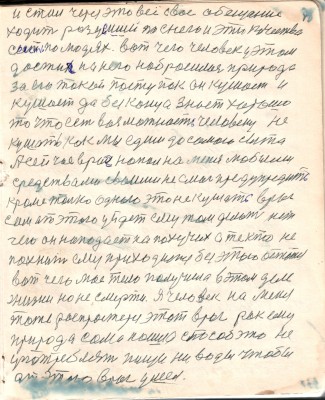 и стал через это всё своё обещание
ходит разувший по снего и эти качества
по людях вот чего человек у этом
достиг на него набросилися природа
за его такой поступок он кушает и
кушает да без конца знает хорошо
то что есть возможность человеку не
кушать как мы едим до самого сыта
А сейчас враг напал на меня любыми
средствами своими не смог предупредить
кроме только одного это не кушать враг
сам от этого уйдет ему там делать нет
чего он нападает на пахучих а те кто не
пахнит ему приходится без этого
вот чего мое тело получила в этом деле
жизни но не смерти. А человек на меня
тоже распростер этот враг рак ему
природа сама нашла способ это не
употреблять пищи ни воды чтобы
от этого враг ушел.